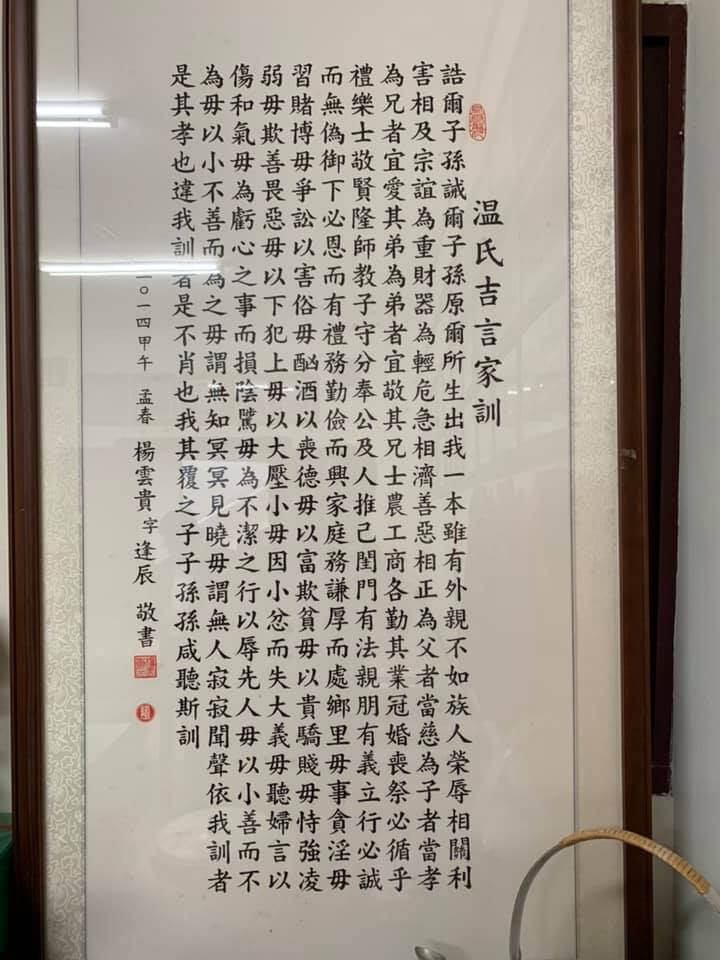 温氏吉言家訓
誥爾子孫誡爾子孫原爾所生出我一本雖有外親不如族人榮辱相關利
害相及宗誼為重財器為輕危急相濟善惡相正為父者當慈為子者當孝
為兄者宜愛其弟為弟者宜敬其兄士農工商各勤其業冠婚喪祭必循乎
禮樂士敬賢隆師教子守分奉公及人推己閨門有法親朋有義立行必誠
而無偽御下必恩而有禮務勤儉而興家庭務謙厚而處鄉里毋事貪淫毋
習賭博毋爭訟以害俗毋酗酒以喪德毋以富欺貧毋以貴驕賤毋恃強凌
弱毋欺善畏惡毋以下犯上毋以大壓小毋因小忿而失大義毋聽婦言以
傷和氣毋為虧心之事而損陰騭毋為不潔之行以辱先人毋以小善而不
為毋以小不善而為之毋謂無知冥冥見曉毋謂無人寂寂聞聲依我訓者
是其孝也違我訓者是不肖也我其覆之子子孫孫咸聽斯訓
二〇一四甲午 孟春 楊雲貴 字 逢辰 敬書